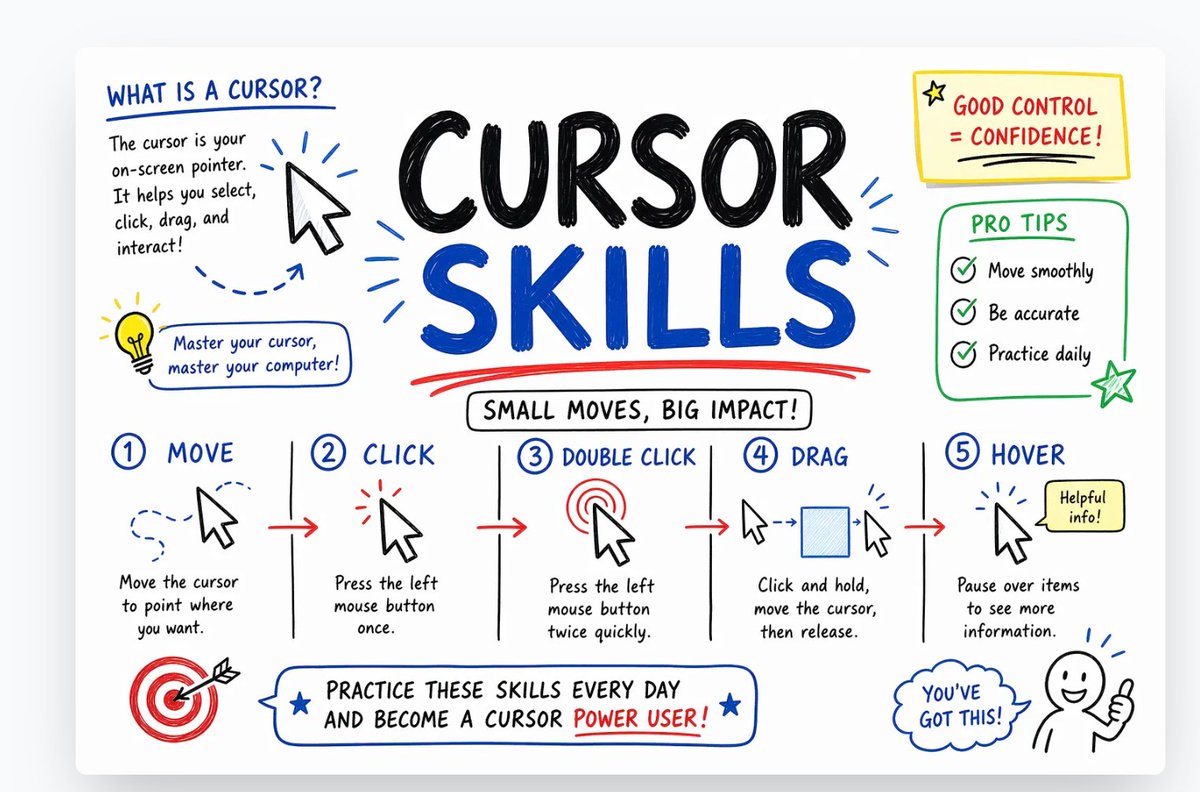 WHAT IS A CURSOR?
The cursor is your
on-screen pointer.
It helps you select,
click, drag, and
interact!
Master your cursor,
master your computer!
CURSOR
SKILLS
SMALL MOVES, BIG IMPACT!
GOOD CONTROL
= CONFIDENCE!
PRO TIPS
Move smoothly
Be accurate
Practice daily
1 MOVE
Move the cursor
to point where
you want.
2 CLICK
Press the left
mouse button
once.
3 DOUBLE CLICK
Press the left
mouse button
twice quickly.
4 DRAG
Click and hold,
move the cursor,
then release.
5 HOVER
Helpful
info!
Pause over items
to see more
information.
PRACTICE THESE SKILLS EVERY DAY
AND BECOME A CURSOR POWER USER!
YOU'VE
GOT THIS!